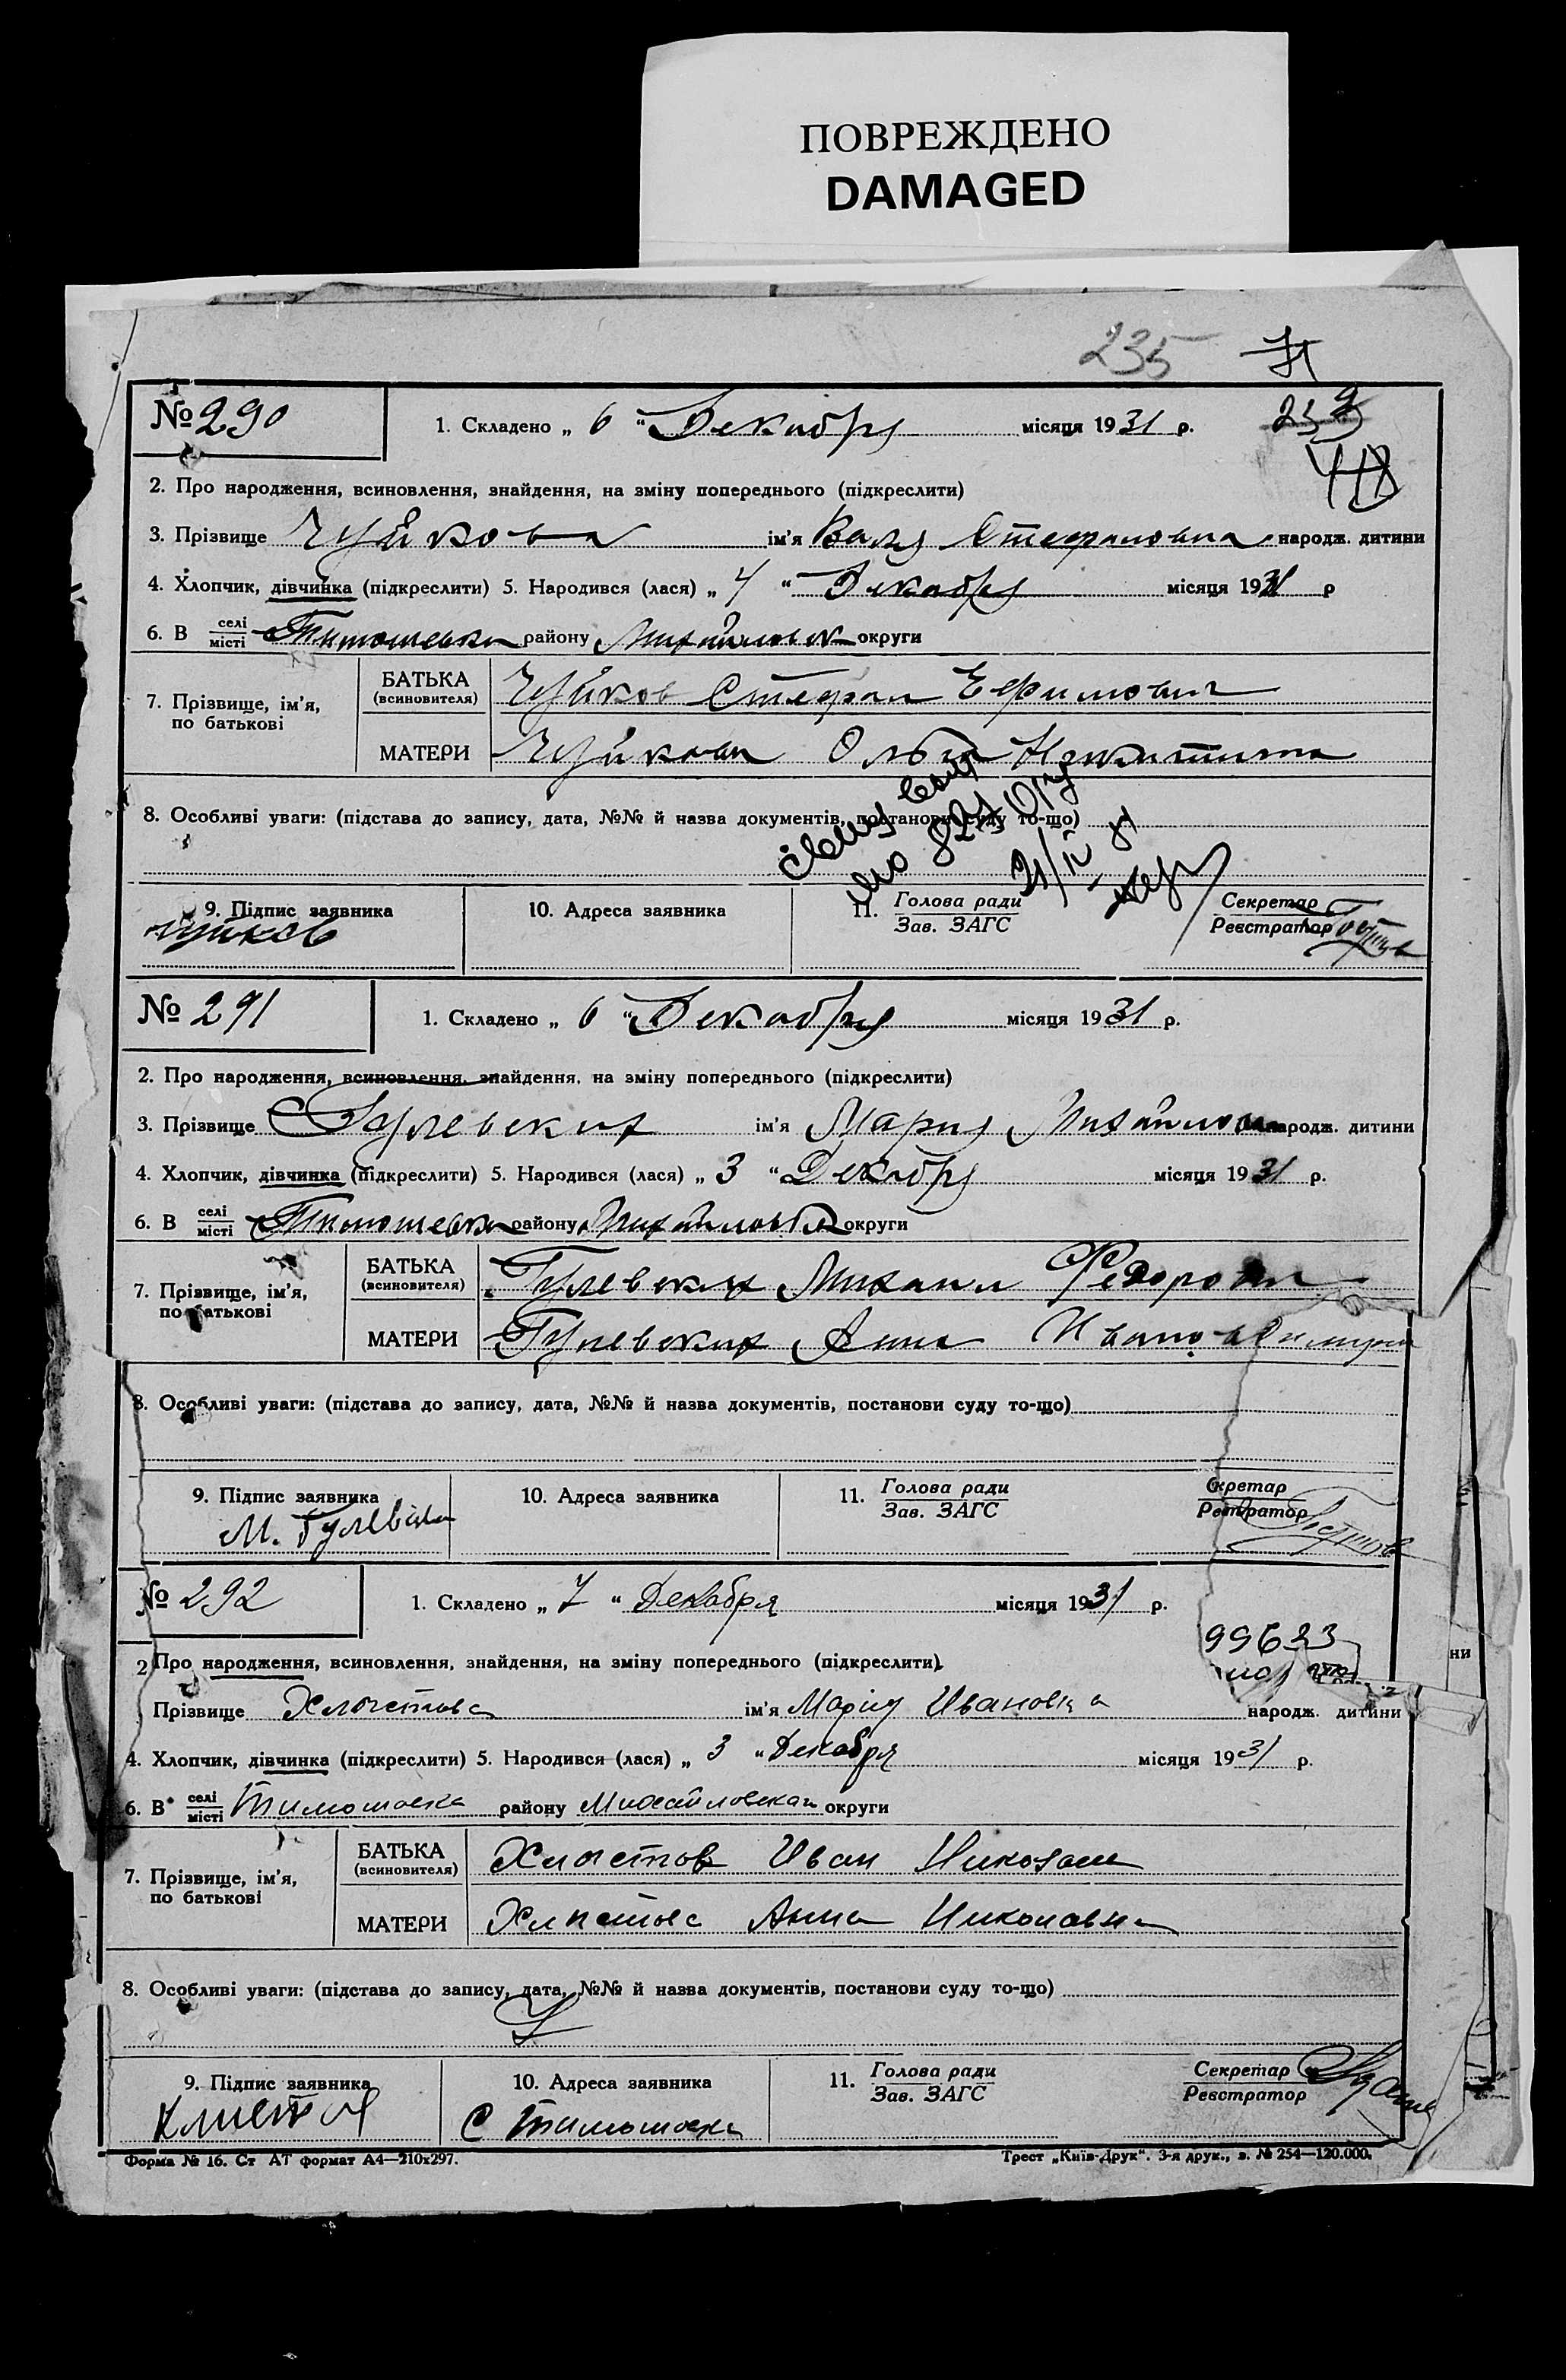 ПОВРЕЖДЕНО
DAMAGED
235
№ 290
1. Складено „ 6 “ Декабря місяця 1931 р.
2. Про народження, всиновлення, знайдення, на зміну попереднього (підкреслити)
3. Прізвище Чуйкова ім'я Валя Стефановна народж. дитини
4. Хлопчик, дівчинка (підкреслити) 5. Народився (лася) „ 4 “ Декабря місяця 1931 р
6. В селі місті Тимошевка району Михайловск округи
7. Прізвище, ім'я, по батькові
БАТЬКА (всиновителя) Чуйков Стефан Ефимович
МАТЕРИ Чуйкова Ольга Никитична
8. Особливі уваги: (підстава до запису, дата, №№ й назва документів, постанови суду то-що)
9. Підпис заявника Чуйков
10. Адреса заявника
11. Голова ради Зав. ЗАГС
Секретар Реєстратор
№ 291
1. Складено „ 6 “ Декабря місяця 1931 р.
2. Про народження, всиновлення, знайдення, на зміну попереднього (підкреслити)
3. Прізвище Гулевских ім'я Мария Михайловна народж. дитини
4. Хлопчик, дівчинка (підкреслити) 5. Народився (лася) „ 3 “ Декабря місяця 1931 р.
6. В селі місті Тимошевка району Михайловка округи
7. Прізвище, ім'я, по батькові
БАТЬКА (всиновителя) Гулевских Михаил Федорович
МАТЕРИ Гулевских Анна
8. Особливі уваги: (підстава до запису, дата, №№ й назва документів, постанови суду то-що)
9. Підпис заявника М. Гулевских
10. Адреса заявника
11. Голова ради Зав. ЗАГС
Скретар Реєтратор
№ 292
1. Складено „ 7 “ Декабря місяця 1931 р.
99633
2 Про народження, всиновлення, знайдення, на зміну попереднього (підкреслити).
Прізвище Хлыстова ім'я Мария Ивановна народж. дитини
4. Хлопчик, дівчинка (підкреслити) 5. Народився (лася) „ 3 “ Декабря місяця 1931 р.
ни
6. В селі місті Тимошовка району Михайловская округи
7. Прізвище, ім'я, по батькові
БАТЬКА (всиновителя) Хлыстов Иван Николаев
МАТЕРИ Хлыстова Анна Николавна
8. Особливі уваги: (підстава до запису, дата, №№ й назва документів, постанови суду то-що)
9. Підпис заявника
10. Адреса заявника С Тимошовка
11. Голова ради Зав. ЗАГС
Секретар Реєстратор
Форма № 16. Ст АТ формат А4—210х297.
Трест „Київ-Друк“. 3-я друк., з. № 254—120.000.